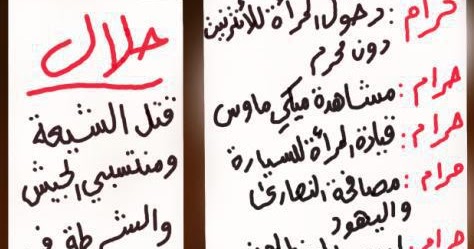 حرام: دخول المرأة للأنترنيت
دون محرم
حرام: مشاهدة ميكي ماوس
حرام: قيادة المرأة للسيارة
حرام: مصافحة النصارى
واليهود
حرام:
حلال
قتل الشيعة
ومنتسبي الجيش
والشرطة في